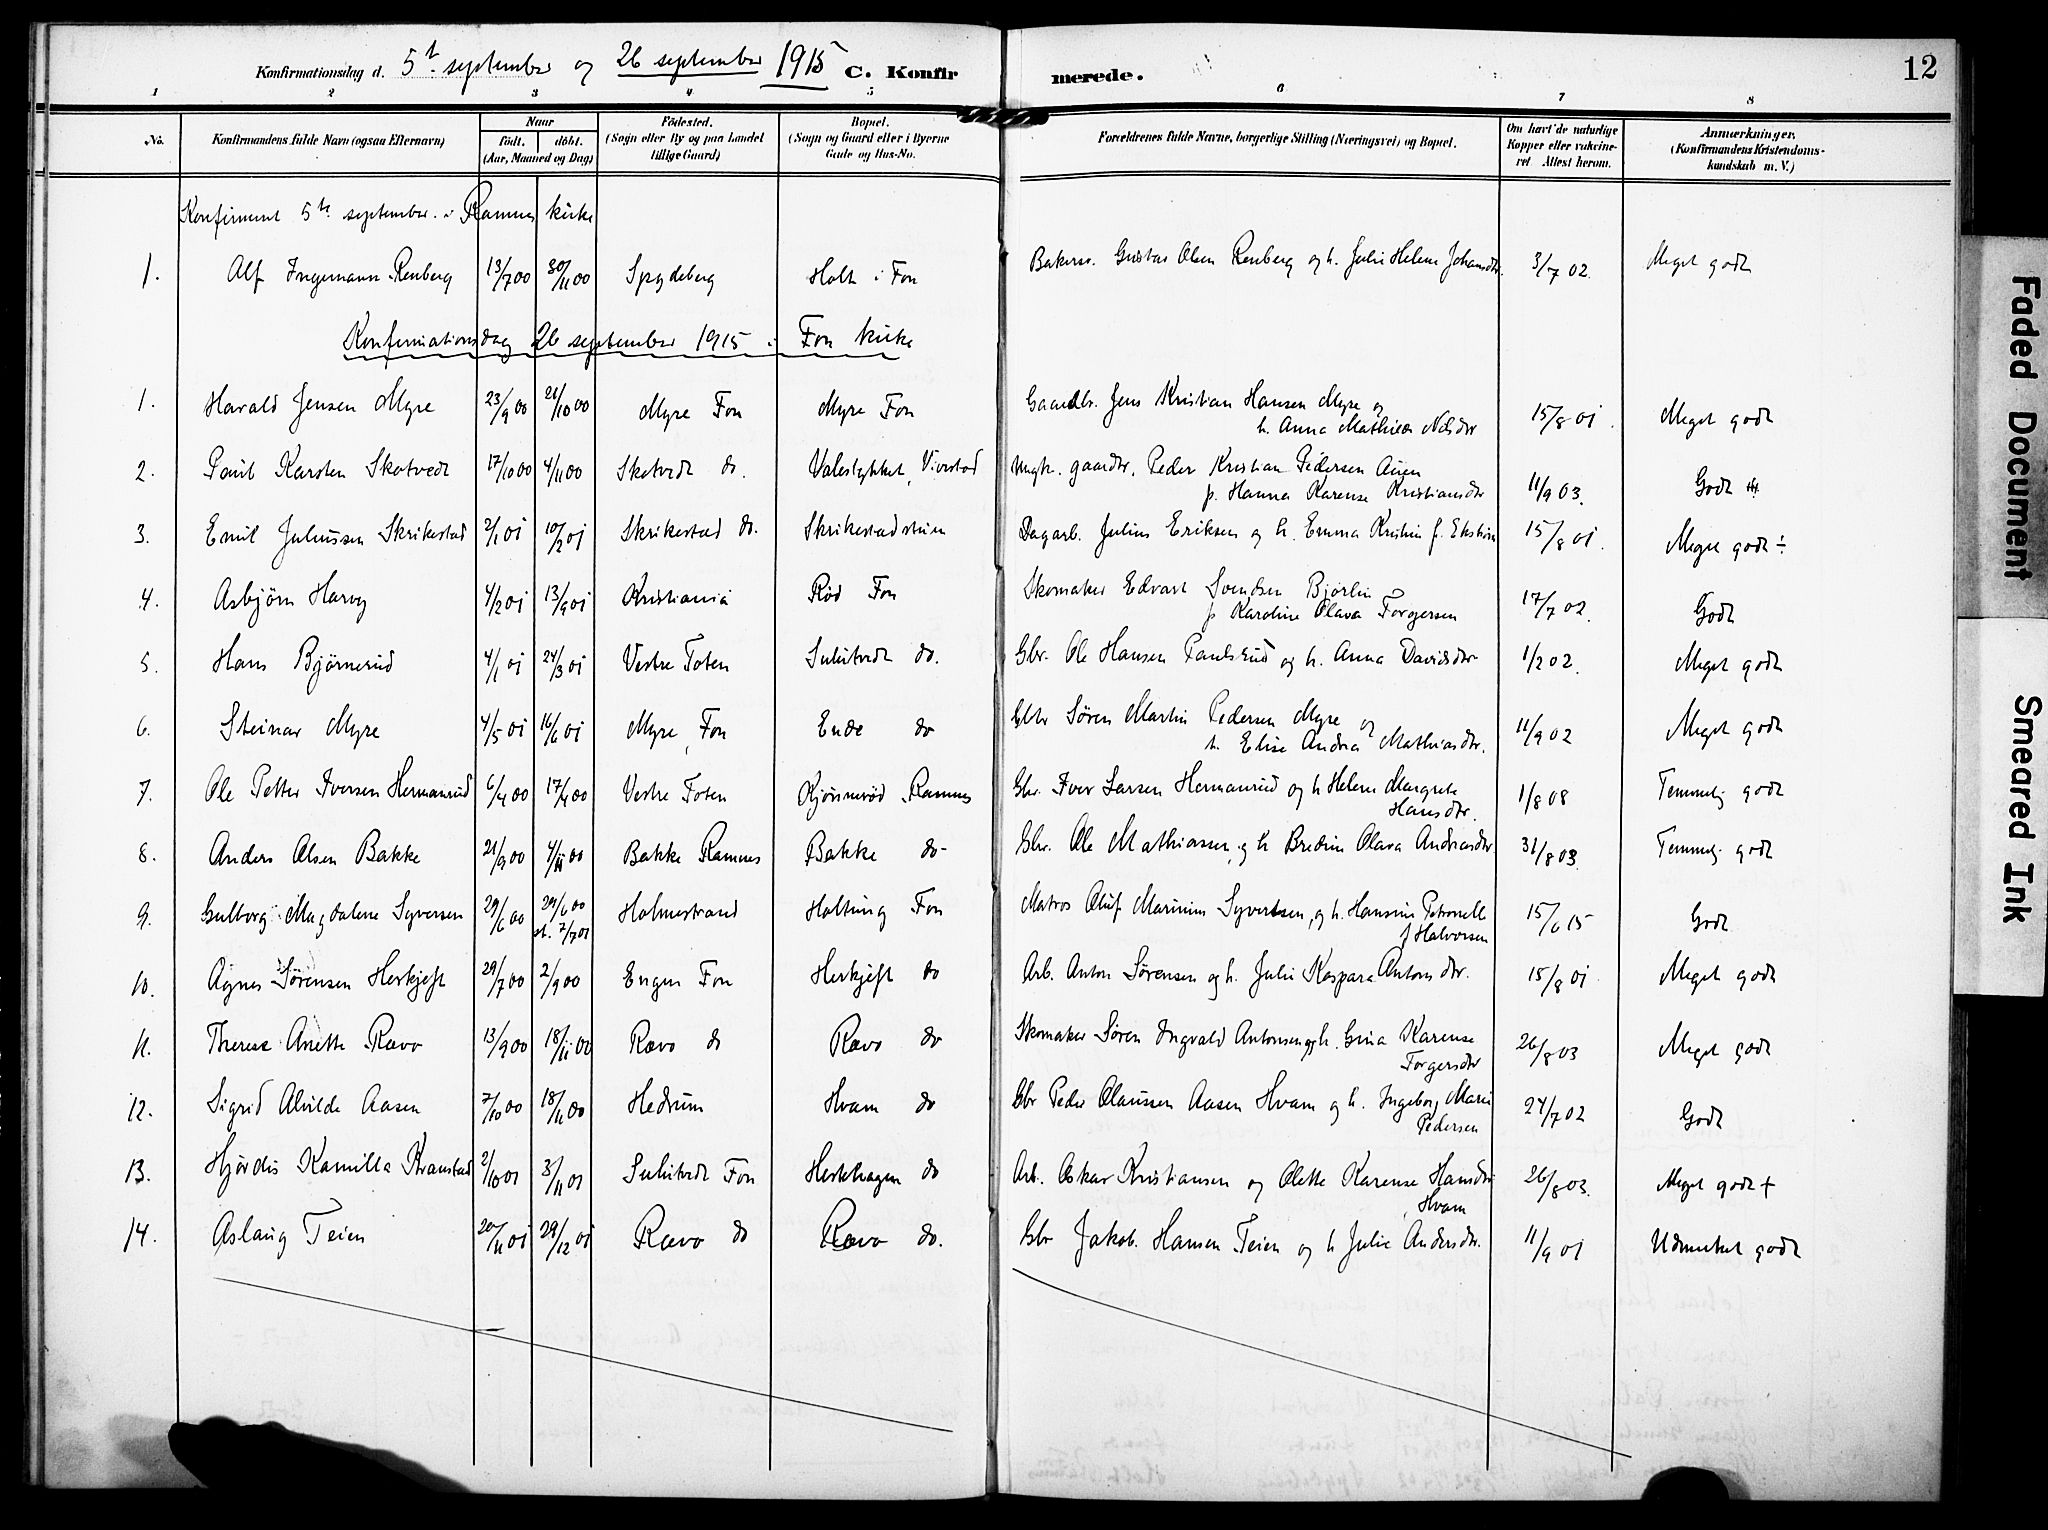 Konfirmationsdag d. 5t september og 26 september 1915 C. Konfir merede. 12
1 2 3 4 5 6 7 8
No. Konfirmandens fulde Navn (ogsaa Efternavn) Naar født. døbt. (Aar, Maaned og Dag) Fødested. (Sogn eller By og paa Landet tillige Gaard) Bopæl. (Sogn og Gaard eller i Byerne Gade og Hus-No. Forældrenes fulde Navne, borgerlige Stilling (Næringsvei) og Bopæl. Om havt de naturlige Kopper eller vakcineret Attest herom. Anmærkninger. (Konfirmandens Kristendomskundskab m. V.)
Konfirmeret 5te september i Ramnes kirke
1. Alf Ingemann Renberg 13/7 00 30/11 00 Spydeberg Holt i Fon Bakersv. Gustav Olsen Renberg og h. Julie Helene Johansdtr. 3/7 02. Meget godt
Konfirmationsdag 26 september 1915 i Fon kirke
1. Harald Jensen Myre 23/9 00 21/10 00 Myre Fon Myre Fon Gaardbr. Jens Kristian Hansen Myre og
h. Anna Mathilde Nilsdtr 15/8 01. Meget godt
2. Paul Karsten Skotvedt 17/10 00 4/11 00 Skotvedt do. Valestykket, Vivestad Ungk. gaardbr. Peder Kristian Pedersen
p. Hanna Karense Kristiansdtr 11/9 03. Godt
3. Emil Juliussen Skrikestad 2/1 01 10/2 01 Skrikestad do. Skrikestadstuen Dagarb. Julius Eriksen og h. Emma Kristin f. Ekstrøm 15/8 01. Meget godt ÷
4. Asbjørn Harvy 4/2 01 13/9 01 Kristiania Rød Fon Skomaker Edvart Svendsen Bjørlin
p Karoline Olava Torgersen 17/7 02. Godt
5. Hans Bjørnerud 4/1 01 24/3 01 Vestre Toten Sulutvedt do. Gbr. Ole Hansen Paulsrud og h. Anna Davidsdtr 1/2 02. Meget godt
6. Steinar Myre 4/5 01 16/6 01 Myre, Fon Ende do Gbr Søren Martin Pedersen Myre og
h. Elise Andrea Mathiasdtr. 11/9 02 Meget godt
7. Ole Petter Iversen Hermanrud 6/4 00 17/4 00 Vestre Toten Kjønnerød Ramnes Gbr. Iver Larsen Hermanrud og h Helene Margrete
Hansdtr. 1/8 08 Temmelig godt
8. Anders Olsen Bakke 21/9 00 4/11 00 Bakke Ramnes Bakke do- Gbr. Ole Mathiassen og h Bredine Olava Andreasdtr 31/8 03. Temmel. godt
9. Gulborg Magdalene Syversen 29/6 00 29/6 00 Holmestrand Holtung Fon Matros Oluf Marinius Syvertsen, og h. Hansine Petronelle
st. 7/7 01 f Halvorsen 15/6 15 Godt
10. Agnes Sørensen Herkjest 29/7 00 2/9 00 Engen Fon Herkjest do Arb. Anton Sørensen og h. Julie Kaspara Antonsdtr. 15/8 01. Meget godt
11. Therese Anette Ravo 13/9 00 18/11 00 Ravo do Ravo do Skomaker Søren Ingvald Antonsen og h. Gina Karense
Torgersdtr 26/8 03 Meget godt
12. Sigrid Alvilde Aasen 7/10 00 18/11 00 Hedrum Hvam do Gbr Peder Olaussen Aasen Hvam og h. Ingeborg Marie
Pedersen 24/7 02 Godt
13. Hjørdis Kamilla Kranstad 2/10 01 3/11 01 Sulutvedt Fon Herkhagen do Arb. Oskar Kristiansen og Olette Karense Hansdtr
Hvam 26/8 03. Meget godt +
14. Aslaug Teien 20/11 01 29/12 01 Ravo do Ravo do. Gbr Jakob Hansen Teien og h Julie Andersdtr. 11/9 01 Udmerket godt
Faded Document
Smeared Ink